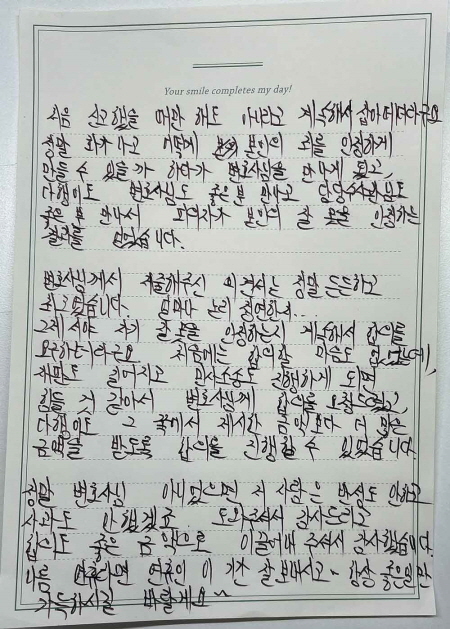 Your smile completes my day!
처음 신고했을 때만 해도 아니라고 계속해서 잡아떼더라구요
정말 화가나고 어떻게 본인의 죄를 인정하게
만들 수 있을까 하다가 변호사님을 만나게 됐고,
다행이도 변호사님도 좋은분 만나고 담당수사관님도
좋은 분 만나서 피의자가 본인의 잘못을 인정하는
결과를 얻었습니다.
변호사님께서 제출해주신 의견서는 정말 든든하고
최고였습니다. 얼마나 논리 정연하신...
그제서야 자기 잘못을 인정하는지 계속해서 합의를
요구하는더라구요 처음에는 합의할 마음도 없었는데,
재판도 길어지고 민사소송도 진행하게 되면
힘들 것 같아서 변호사님께 합의를 요청드렸고,
다행이도 그 쪽에서 제시한 금액보다 더 많은
금액을 받도록 합의를 진행할 수 있었습니다.
정말 변호사님 아니었으면 저 사람은 반성도 안하고
사과도 안했겠죠 도와주셔서 감사드리고
합의도 좋은 금액으로 이끌어내 주셔서 감사했습니다.
나름 연휴라면 연휴인 이 기간 잘 보내시고~ 항상 좋은일만
가득하시길 바랄게요~